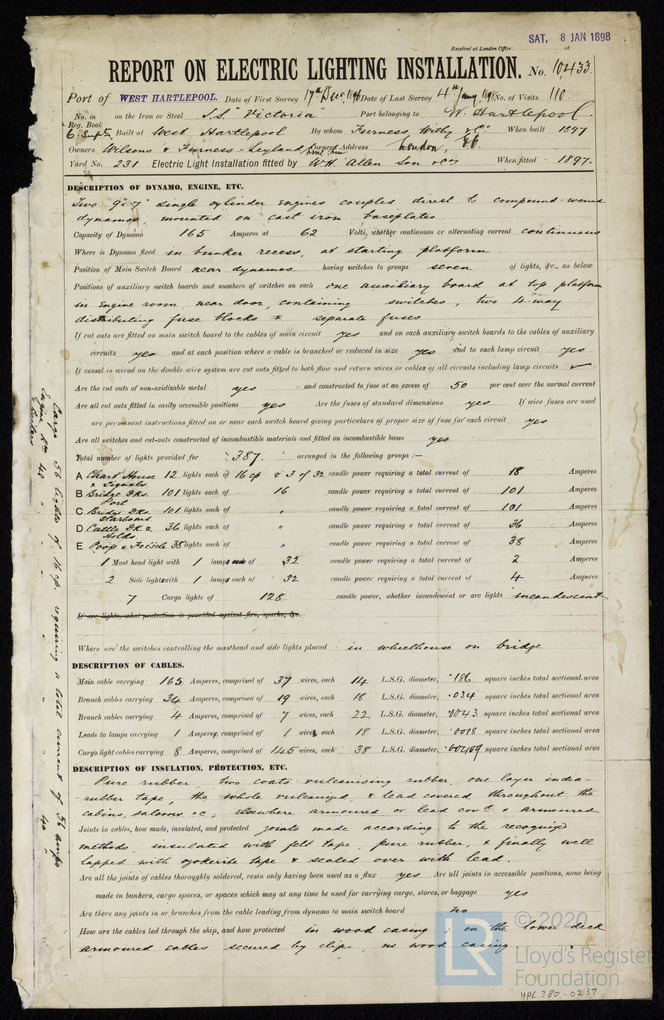 SAT. 8 JAN 1898
Received at London Office 18
REPORT ON ELECTRIC LIGHTING INSTALLATION. No. 10,433
Port of WEST HARTLEPOOL. Date of First Survey 17th Dec, 1896 Date of Last Survey 4th Jany, 1898 No. of Visits 110
No. in Reg. Book on the Iron or Steel S.S. "Victoria" Port belonging to W. Hartlepool
6 Built at West Hartlepool By whom Furness, Withy & Co When built 1897
Owners Wilsons & Furness-Leyland Owners' Address London, EC
Yard No. 231 Electric Light Installation fitted by W H Allen Son & Co When fitted 1897.
DESCRIPTION OF DYNAMO, ENGINE, ETC.
Two 9" - 7" single cylinder engines coupled direct to compound-wound
dynamos, mounted on cast iron baseplates
Capacity of Dynamo 165 Amperes at 62 Volts, whether continuous or alternating current continuous
Where is Dynamo fixed in bunker recess, at starting platform
Position of Main Switch Board near dynamos having switches to groups seven of lights, &c., as below
Positions of auxiliary switch boards and numbers of switches on each one auxiliary board at top platform
in Engine room near door, containing switches, two 4-way
distributing fuse blocks & separate fuses
If cut outs are fitted on main switch board to the cables of main circuit yes and on each auxiliary switch boards to the cables of auxiliary
circuits yes and at each position where a cable is branched or reduced in size yes and to each lamp circuit yes
If vessel is wired on the double wire system are cut outs fitted to both flow and return wires or cables of all circuits including lamp circuits ✓
Are the cut outs of non-oxidizable metal yes and constructed to fuse at an excess of 50 per cent over the normal current
Are all cut outs fitted in easily accessible positions yes Are the fuses of standard dimensions yes If wire fuses are used
are permanent instructions fitted on or near each switch board giving particulars of proper size of fuse for each circuit yes
Are all switches and cut-outs constructed of incombustible materials and fitted on incombustible bases yes
Total number of lights provided for 387. arranged in the following groups :—
A Chart House & Signals 12 lights each of 16 cp & 3 of 32 candle power requiring a total current of 18 Amperes
B Bridge Dks. Port 101 lights each of 16 candle power requiring a total current of 101 Amperes
C Bridge Dks. Starboard 101 lights each of " candle power requiring a total current of 101 Amperes
D Cattle Dk & Holds 36 lights each of " candle power requiring a total current of 36 Amperes
E Poop & Fo'cicle 38 lights each of " candle power requiring a total current of 38 Amperes
1 Mast head light with 1 lamp of 32 candle power requiring a total current of 2 Amperes
2 Side lights with 1 lamp each of 32 candle power requiring a total current of 4 Amperes
7 Cargo lights of 128 candle power, whether incandescent or arc lights incandescent
If arc lights, what protection is provided against fire, sparks, &c.
Where are the switches controlling the masthead and side lights placed in wheelhouse on bridge
DESCRIPTION OF CABLES.
Main cable carrying 165 Amperes, comprised of 37 wires, each 14 L.S.G. diameter, .186 square inches total sectional area
Branch cables carrying 34 Amperes, comprised of 19 wires, each 18 L.S.G. diameter, .034 square inches total sectional area
Branch cables carrying 4 Amperes, comprised of 7 wires, each 22 L.S.G. diameter, .0043 square inches total sectional area
Leads to lamps carrying 1 Ampere, comprised of 1 wire, each 18 L.S.G. diameter, .0018 square inches total sectional area
Cargo light cables carrying 8 Amperes, comprised of 145 wires, each 38 L.S.G. diameter, square inches total sectional area
DESCRIPTION OF INSULATION, PROTECTION, ETC.
Pure rubber, two coats vulcanising rubber, one layer india-
rubber tape, the whole vulcanized, & lead covered throughout the
cabins, saloons &c, elsewhere armoured or lead cov'd & armoured
Joints in cables, how made, insulated, and protected joints made according to the recognized
methods, insulated with felt tape, pure rubber, & finally well
lapped with ozokerite tape & sealed over with lead.
Are all the joints of cables thoroughly soldered, resin only having been used as a flux yes Are all joints in accessible positions, none being
made in bunkers, cargo spaces, or spaces which may at any time be used for carrying cargo, stores, or baggage yes
Are there any joints in or branches from the cable leading from dynamo to main switch board no
How are the cables led through the ship, and how protected in wood casing ; on the lower deck
armoured cables secured by clips, no wood casing
Cargo 56 lights of 16 cp. requiring a total current of 56 amps
Engine Rm 40 " " " " 40 "
© 2020
LR
Lloyd's Register
Foundation
HPL 380-0237